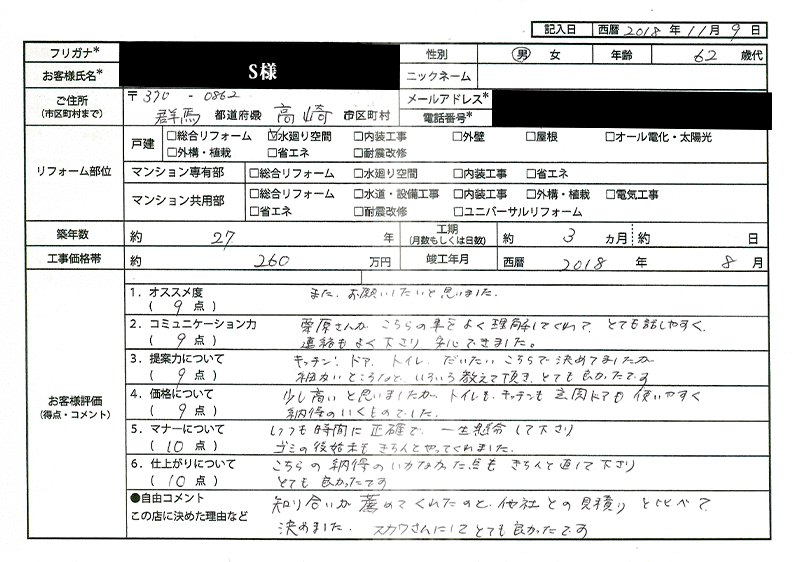 記入日 西暦 2018 年 11 月 9 日
フリガナ* 性別 男 女 年齢 62 歳代
お客様氏名* S様 ニックネーム
ご住所 (市区町村まで) 〒370 - 0862 メールアドレス*
群馬 都道府県 高崎 市区町村 電話番号*
リフォーム部位
戸建 □総合リフォーム ☑水廻り空間 □内装工事 □外壁 □屋根 □オール電化・太陽光
□外構・植栽 □省エネ □耐震改修
マンション専有部 □総合リフォーム □水廻り空間 □内装工事 □省エネ
マンション共用部 □総合リフォーム □水道・設備工事 □内装工事 □外構・植栽 □電気工事
□省エネ □耐震改修 □ユニバーサルリフォーム
築年数 約 27 年 工期 (月数もしくは日数) 約 3 ヵ月 約 日
工事価格帯 約 260 万円 竣工年月 西暦 2018 年 8 月
お客様評価 (得点・コメント)
1. オススメ度 また、お願いしたいと思いました.
( 9 点 )
2. コミュニケーション力 栗原さんが こちらの事をよく理解してくれて、とても話しやすく、
( 9 点 ) 連絡もよく下さり 安心できました。
3. 提案力について キッチン、ドア、トイレ、だいたいこちらで決めてましたが
( 9 点 ) 細かいところなど、いろいろ教えて頂き、とても良かったです
4. 価格について 少し高いと思いましたが、トイレも、キッチンも玄関ドアも使いやすく
( 9 点 ) 納得のいくものでした.
5. マナーについて いつも時間に正確で、一生懸命して下さり
( 10 点 ) ゴミの後始末もきちんとやってくれました.
6. 仕上がりについて こちらの納得のいかなかった点もきちんと直して下さり
( 10 点 ) とても良かったです
●自由コメント 知り合いが薦めてくれたのと、他社との見積りと比べて
この店に決めた理由など 決めました. スカワさんにしてとても良かったです